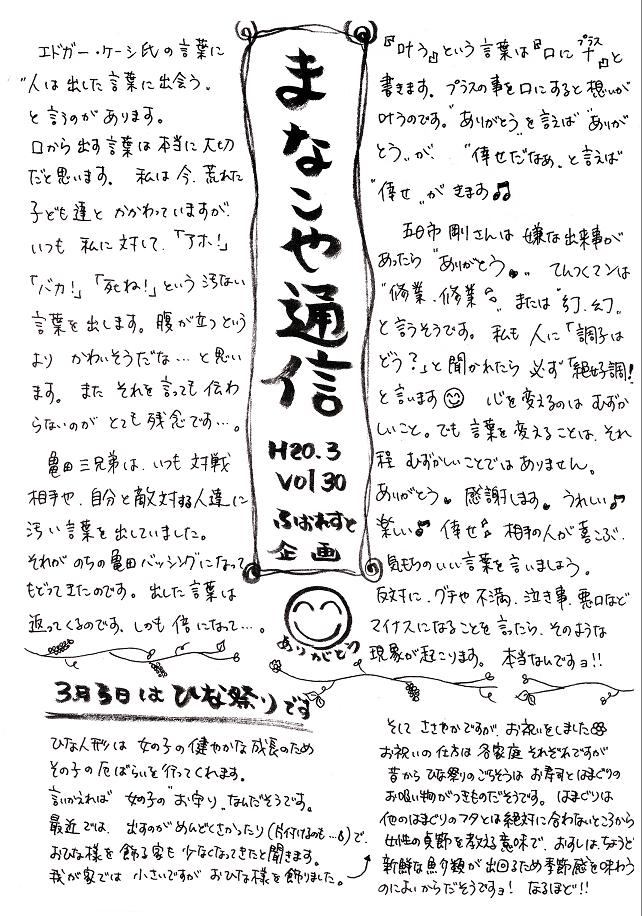 まなこや通信
H20.3
Vol 30
ふぉれすと
企画
ありがとう
『叶う』という言葉は『口に十プラス』と
書きます。プラスの事を口にすると想いが
叶うのです。"ありがとう"を言えば"ありが
とう"が、"倖せだなぁ"と言えば
"倖せ"がきます♫
五日市剛さんは嫌な出来事が
あったら"ありがとう。"てんつくマンは
"修業、修業"または"幻、幻"
と言うそうです。私も人に「調子は
どう?」と聞かれたら必ず「絶好調!
と言います☺ 心を変えるのはむずか
しいこと。でも言葉を変えることは、それ
程むずかしいことではありません。
ありがとう。感謝します。うれしい♪
楽しい♫ 倖せ 相手の人が喜ぶ、
気もちのいい言葉を言いましょう。
反対に、グチや不満、泣き事、悪口など
マイナスになることを言ったら、そのような
現象が起こります。本当なんですョ!!
エドガー・ケーシ氏の言葉に
"人は出した言葉に出会う。
と言うのがあります。
口から出す言葉は本当に大切
だと思います。私は今、荒れた
子ども達とかかわっていますが、
いつも私に対して、「アホ!」
「バカ!」「死ね!」という汚ない
言葉を出します。腹が立つという
よりかわいそうだな…と思い
ます。またそれを言っても伝わ
らないのがとても残念です…。
亀田三兄弟は、いつも対戦
相手や、自分と敵対する人達に
汚い言葉を出していました。
それがのちの亀田バッシングになって
もどってきたのです。出した言葉は
返ってくるのです、しかも倍になって…。
3月3日はひな祭りです
ひな人形は女の子の健やかな成長のため
その子の厄ばらいを行ってくれます。
言いかえれば女の子の"お守り"なんだそうです。
最近では、出すのがめんどくさかったり(片付けるのも…)で、
おひな様を飾る家も少なくなってきたと聞きます。
我が家では小さいですがおひな様を飾りました。
そしてささやかですが、お祝いをしました
お祝いの仕方は各家庭それぞれですが
昔からひな祭りのごちそうはお寿司とはまぐりの
お吸い物がつきものだそうです。はまぐりは
他のはまぐりのフタとは絶対に合わないところから
女性の貞節を教える意味で、おすしは、ちょうど
新鮮な魚介類が出回るため季節感を味わう
のによいからだそうですョ!なるほど!!